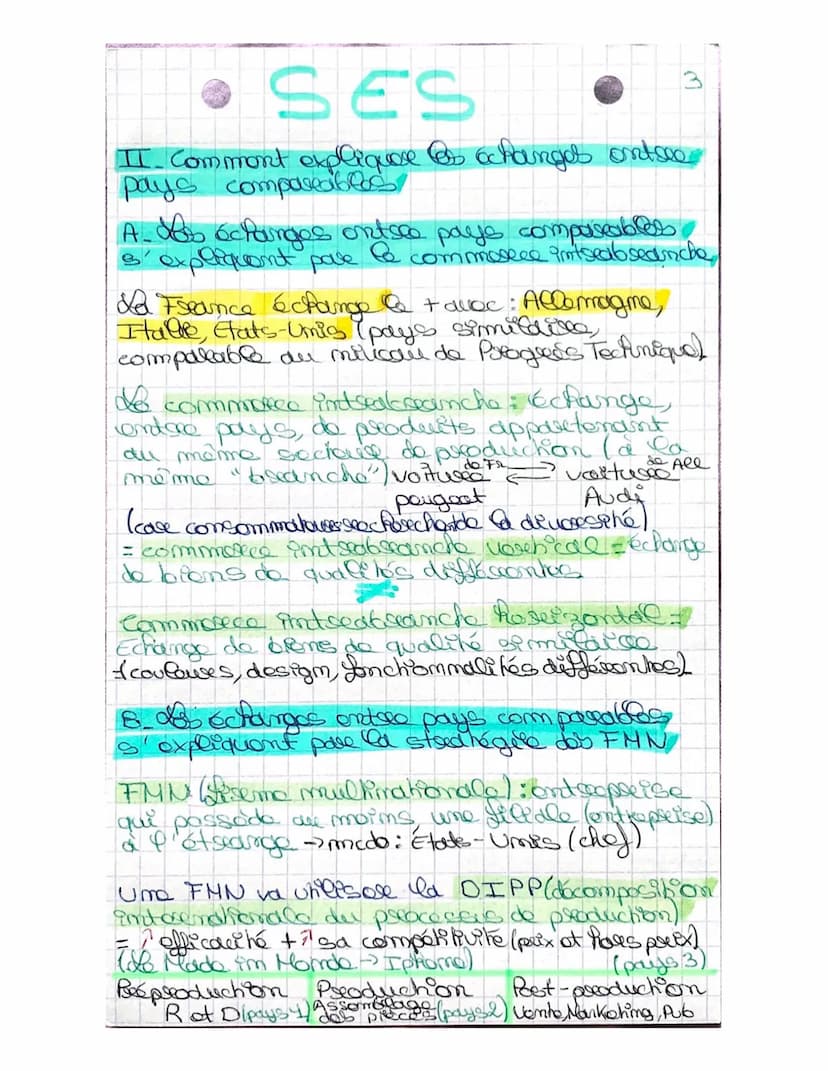 SES
3
II- Comment expliquer les échanges entre
pays comparables
A- Les échanges entre pays comparables
s'expliquent par le commerce intrabranche
La France échange le + avec : Allemagne,
Italie, Etats-Unis (pays similaire,
comparable au niveau de Progrès Technique)
Le commerce intrabranche : Echange,
entre pays, de produits appartenant
au même secteur de production (à la
même "branche") voiture de Fr ⇄ voiture de All
peugeot Audi
(car consommateurs recherche de la diversité)
= commerce intrabranche vertical = échange
de biens de qualités différentes
Commerce intrabranche horizontal =
Echange de biens de qualité similaire
≠ (couleurs, design, fonctionnalités différentes)
B- Les échanges entre pays comparables
s'expliquent par la stratégie des FMN
FMN (firme multinationale) : entreprise
qui possède au moins une filiale (entreprise)
à l'étrange → mcdo : États-Unis (chef)
Une FMN va utiliser la DIPP (décomposition
internationale du processus de production)
= ↗ efficacité + ↗ sa compétitivité (prix et hors prix)
(le Made in Monde → Iphone) (pays 3)
Préproduction Production Post-production
R et D (pays 1) Assemblage des pièces (pays 2) Vente, Marketing, Pub